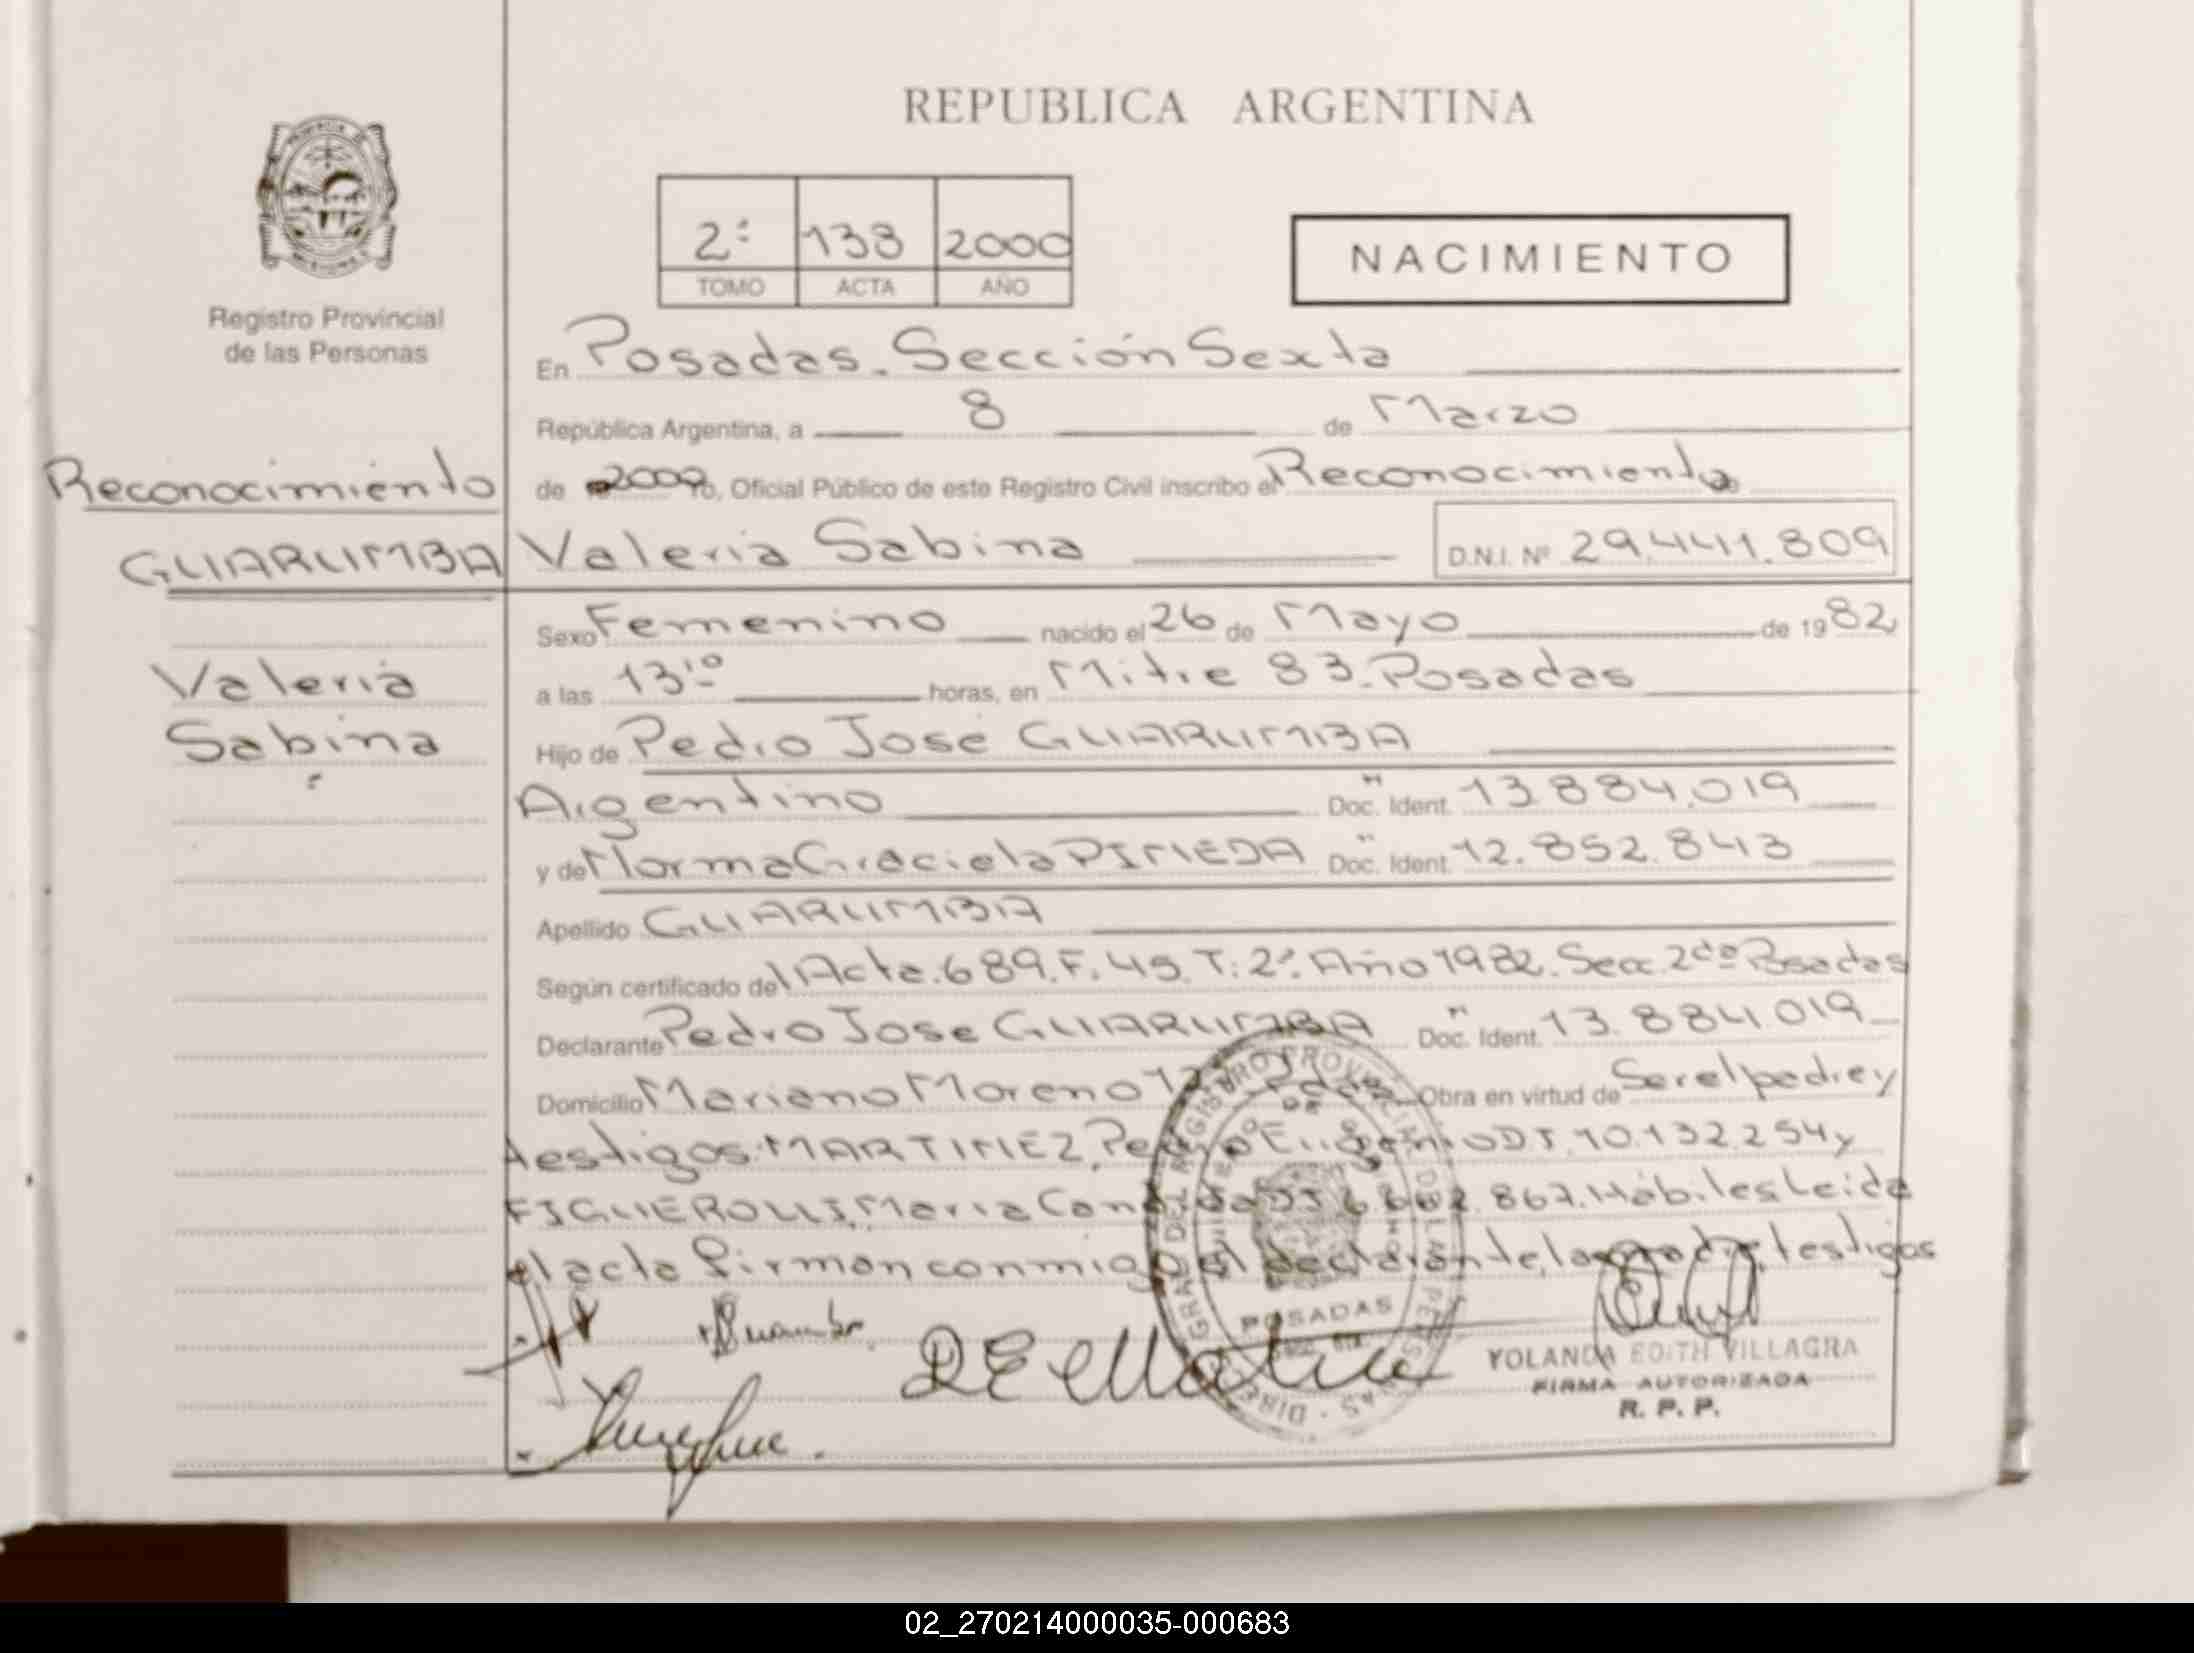 REPUBLICA ARGENTINA
2º 138 2000
TOMO ACTA AÑO
NACIMIENTO
Registro Provincial
de las Personas
En Posadas. Sección Sexta
República Argentina, a 8 de Marzo
Reconocimiento
de 2000 Yo, Oficial Público de este Registro Civil inscribo el Reconocimiento
GUARUMBA Valeria Sabina D.N.I. Nº 29.441.809
Sexo Femenino nacido el 26 de Mayo de 1982
Valeria
a las 13 horas, en Mitre 83. Posadas
Sabina
Hijo de Pedro José GUARUMBA
Argentino Doc. Ident. 13.884.019
y de Norma Graciela PINEDA Doc. Ident. 12.852.843
Apellido GUARUMBA
Según certificado del Acta. 689. F. 49. T: 2º. Año 1982. Secc. 2da Posadas
Declarante Pedro José GUARUMBA Doc. Ident. 13.884.019
Domicilio Mariano Moreno Obra en virtud de Ser el padre y
testigos: MARTINEZ, Pedro Eugenio D.I. 10.132.254 y
FIGUEROLLI, Maria DI 867. Hábiles Leida
el acta firman conmigo el declarante, la madre, testigos
POSADAS
YOLANDA EDITH VILLAGRA
FIRMA AUTORIZADA
R. P. P.
02_270214000035-000683